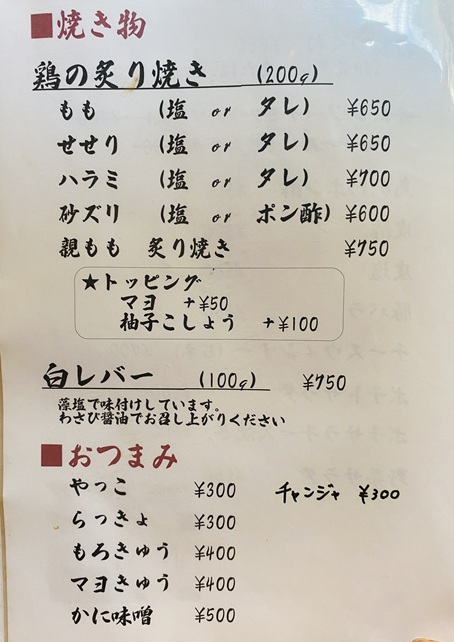 ■焼き物
鶏の炙り焼き (200g)
もも (塩 or タレ) ¥650
せせり (塩 or タレ) ¥650
ハラミ (塩 or タレ) ¥700
砂ズリ (塩 or ポン酢) ¥600
親もも 炙り焼き ¥750
★トッピング
マヨ +¥50
柚子こしょう +¥100
白レバー (100g) ¥750
藻塩で味付けしています。
わさび醤油でお召し上がりください
■おつまみ
やっこ ¥300 チャンジャ ¥300
らっきょ ¥300
もろきゅう ¥400
マヨきゅう ¥400
かに味噌 ¥500